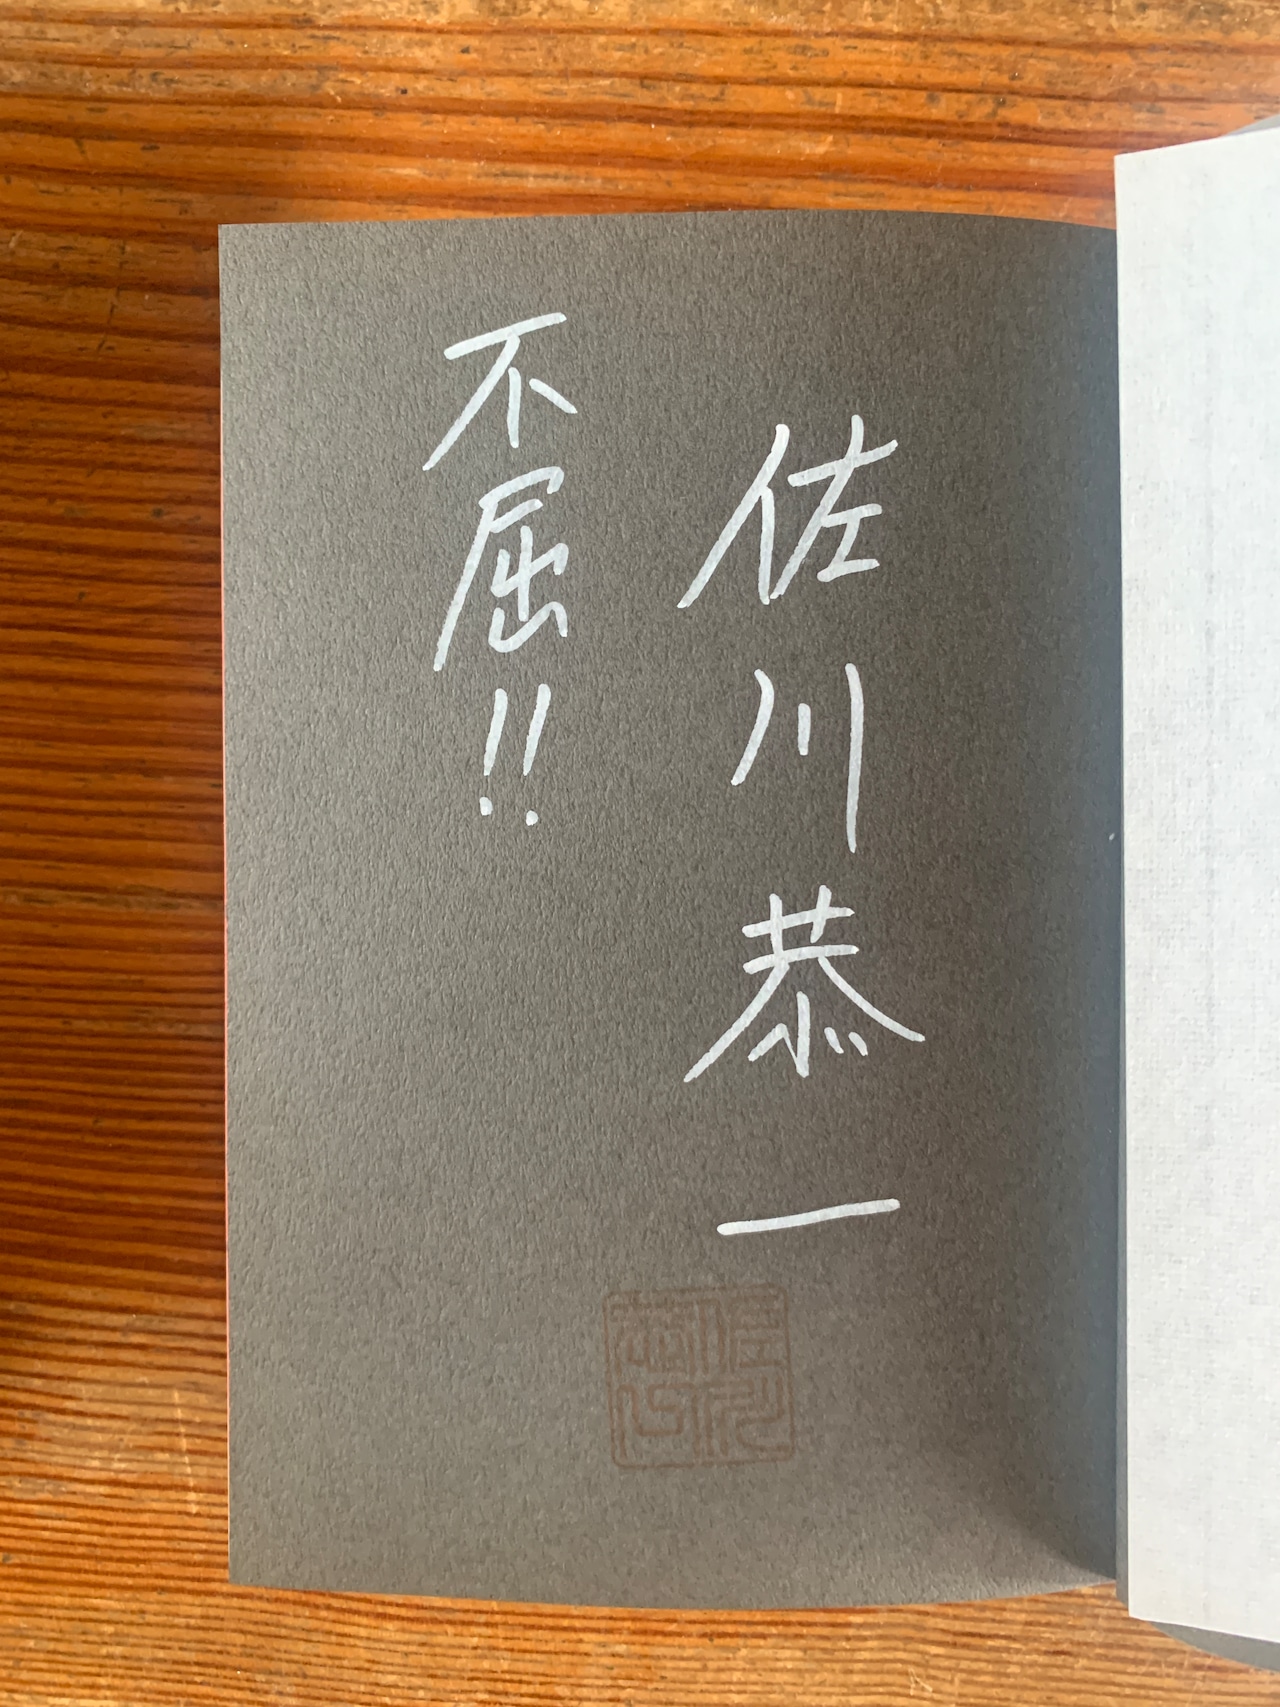 佐川恭一
不屈!!